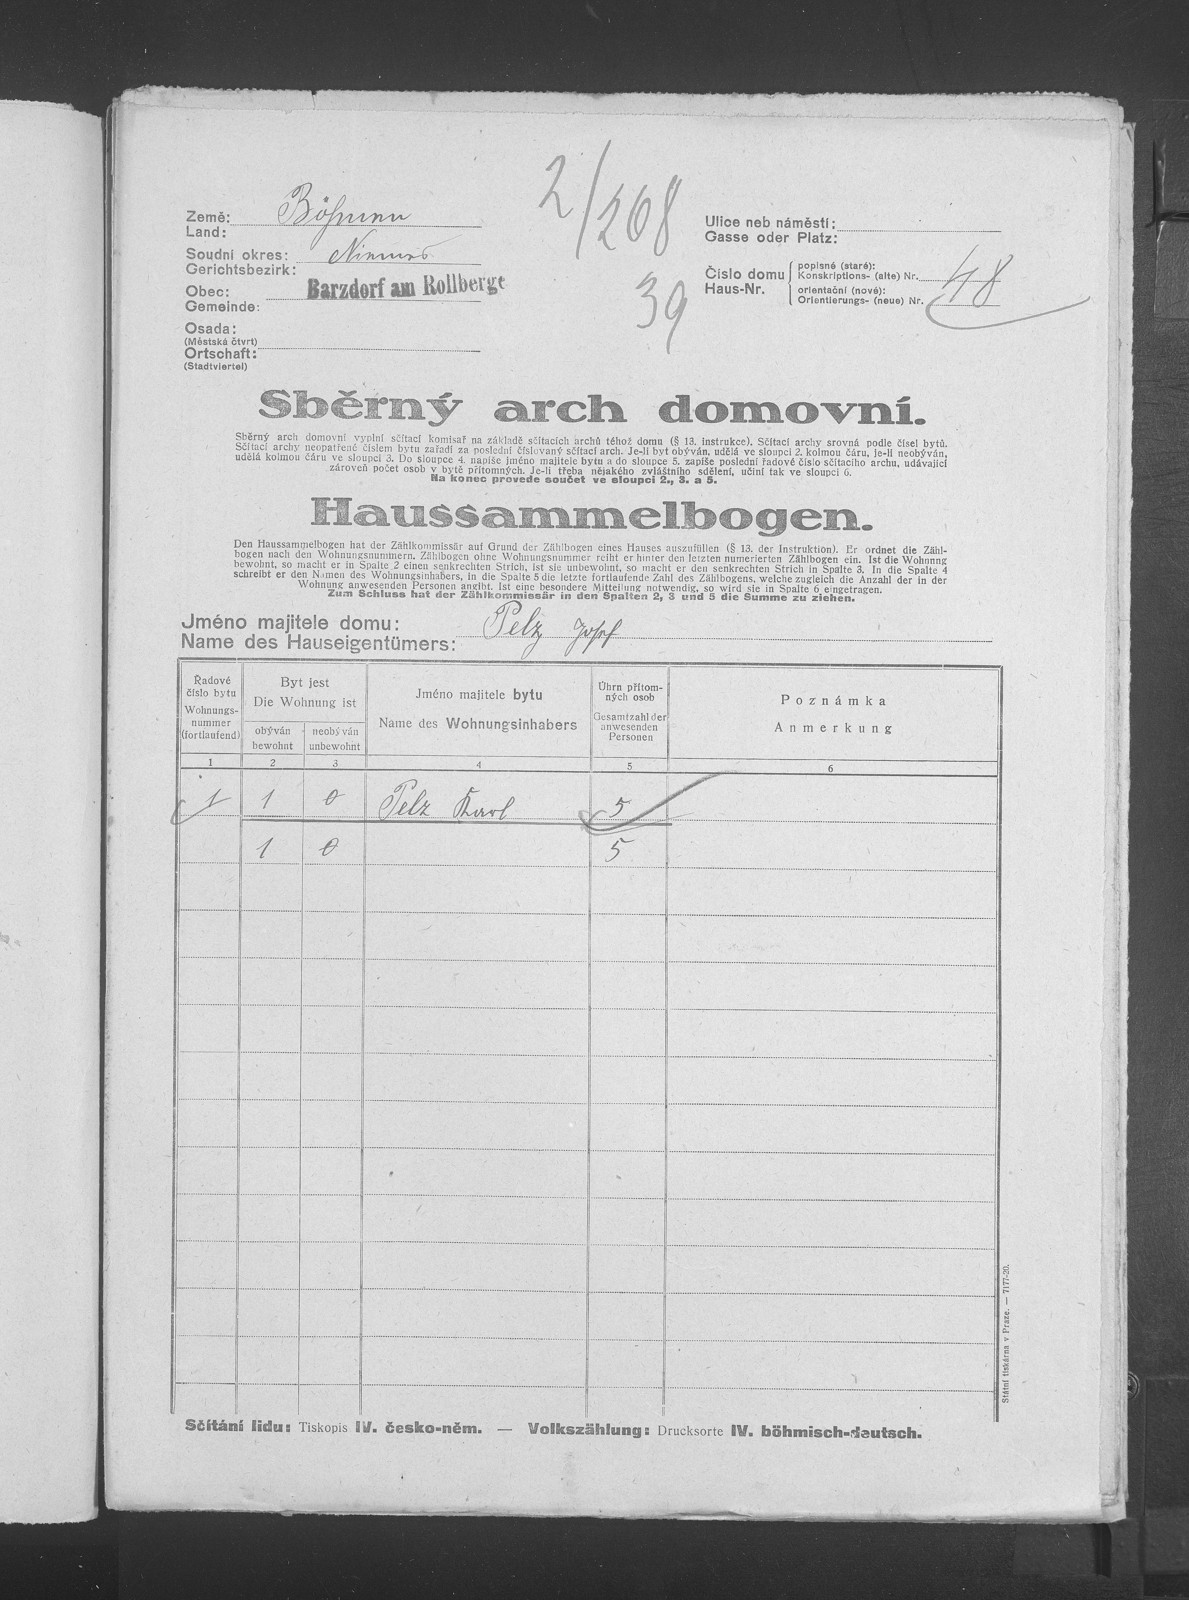 2/268
39
Země: Böhmen
Land:
Soudní okres: Niemes
Gerichtsbezirk:
Obec: Barzdorf am Rollberge
Gemeinde:
Osada:
(Městská čtvrt)
Ortschaft:
(Stadtviertel)
Ulice neb náměstí:
Gasse oder Platz:
Číslo domu
Haus-Nr.
popisné (staré):
Konskriptions- (alte) Nr. 48
orientační (nové):
Orientierungs- (neue) Nr.
Sběrný arch domovní.
Sběrný arch domovní vyplní sčítací komisař na základě sčítacích archů téhož domu (§ 13. instrukce). Sčítací archy srovná podle čísel bytů.
Sčítací archy neopatřené číslem bytu zařadí za poslední číslovaný sčítací arch. Je-li byt obýván, udělá ve sloupci 2. kolmou čáru, je-li neobýván,
udělá kolmou čáru ve sloupci 3. Do sloupce 4. napíše jméno majitele bytu a do sloupce 5. zapíše poslední řadové číslo sčítacího archu, udávající
zároveň počet osob v bytě přítomných. Je-li třeba nějakého zvláštního sdělení, učiní tak ve sloupci 6.
Na konec provede součet ve sloupci 2., 3. a 5.
Haussammelbogen.
Den Haussammelbogen hat der Zählkommissär auf Grund der Zählbogen eines Hauses auszufüllen (§ 13. der Instruktion). Er ordnet die Zähl-
bogen nach den Wohnungsnummern. Zählbogen ohne Wohnungsnummer reiht er hinter den letzten numerierten Zählbogen ein. Ist die Wohnung
bewohnt, so macht er in Spalte 2 einen senkrechten Strich, ist sie unbewohnt, so macht er den senkrechten Strich in Spalte 3. In die Spalte 4
schreibt er den Namen des Wohnungsinhabers, in die Spalte 5 die letzte fortlaufende Zahl des Zählbogens, welche zugleich die Anzahl der in der
Wohnung anwesenden Personen angibt. Ist eine besondere Mitteilung notwendig, so wird sie in Spalte 6 eingetragen.
Zum Schluss hat der Zählkommissär in den Spalten 2, 3 und 5 die Summe zu ziehen.
Jméno majitele domu: Pelz Josef
Name des Hauseigentümers:
Řadové
číslo bytu
Wohnungs-
nummer
(fortlaufend)
Byt jest
Die Wohnung ist
obýván
bewohnt
neobýván
unbewohnt
Jméno majitele bytu
Name des Wohnungsinhabers
Úhrn přítom-
ných osob
Gesamtzahl der
anwesenden
Personen
Poznámka
Anmerkung
1 2 3 4 5 6
1 1 0 Pelz Karl 5
1 0 5
Sčítání lidu: Tiskopis IV. česko-něm. — Volkszählung: Drucksorte IV. böhmisch-deutsch.
Státní tiskárna v Praze. — 7177-20.